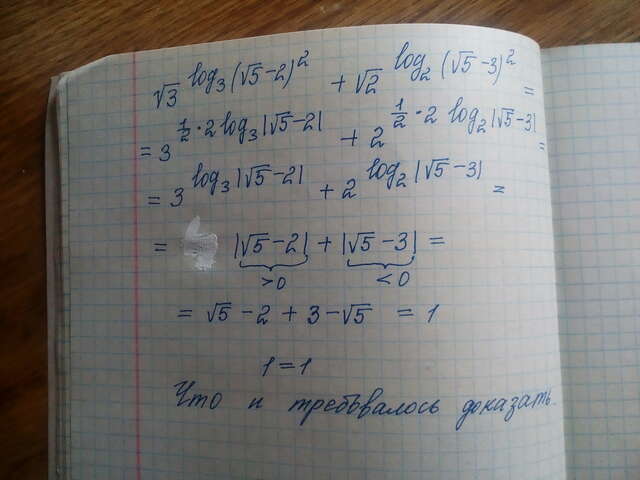 √3^(log₃(√5-2)²) + √2^(log₂(√5-3)²) =
= 3^(½·2log₃|√5-2|) + 2^(½·2log₂|√5-3|) =
= 3^(log₃|√5-2|) + 2^(log₂|√5-3|) =
= |√5-2| + |√5-3| =
>0 <0
= √5 - 2 + 3 - √5 = 1
1=1
Что и требовалось доказать.